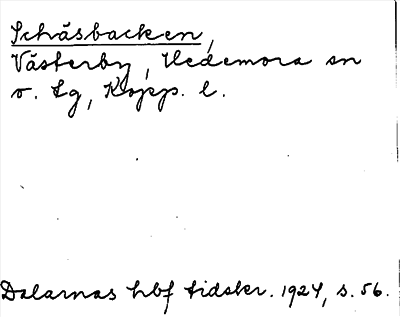 Schåsbacken,
Västerby, Hedemora sn
o. Lg, Kopp. l.
Dalarnas hbf tidskr. 1924, s. 56.